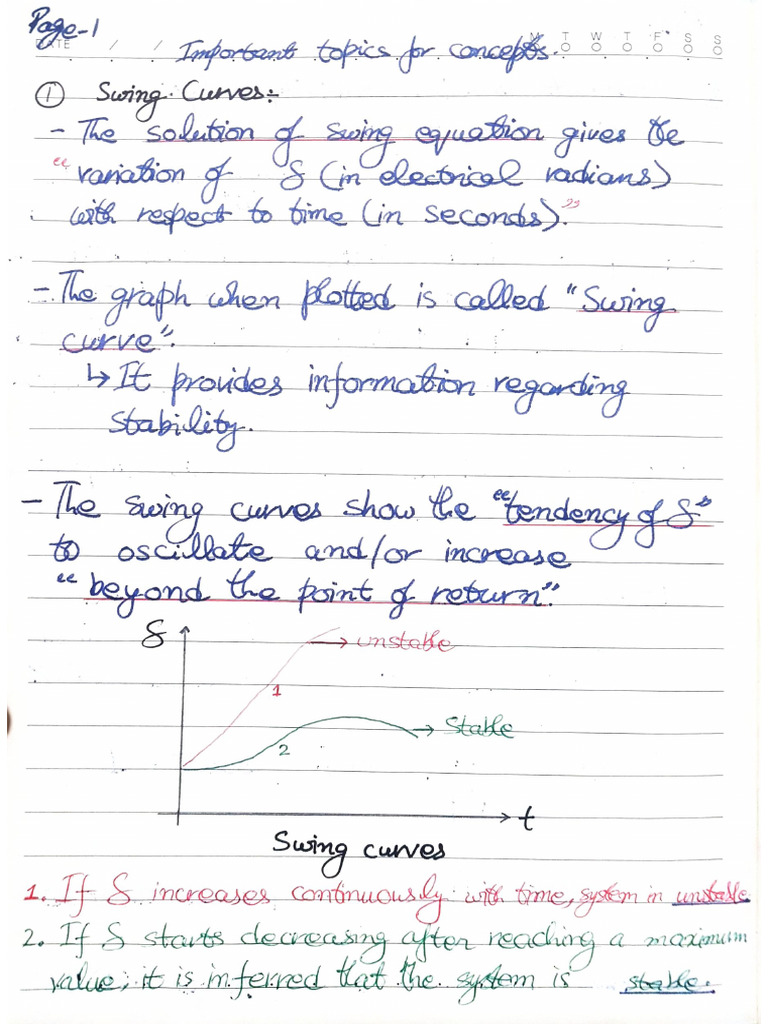 Page-1
DATE / / M T W T F S S
Important topics for concepts.
① Swing Curves:-
- The solution of swing equation gives the
"variation of δ (in electrical radians)
with respect to time (in seconds)."
- The graph when plotted is called "Swing
curve".
↳ It provides information regarding
stability.
- The swing curves show the "tendency of δ"
to oscillate and/or increase
"beyond the point of return".
δ
→ unstable
1
→ Stable
2
→ t
Swing curves
1. If δ increases continuously with time, system in unstable.
2. If δ starts decreasing after reaching a maximum
value; it is inferred that the system is stable.